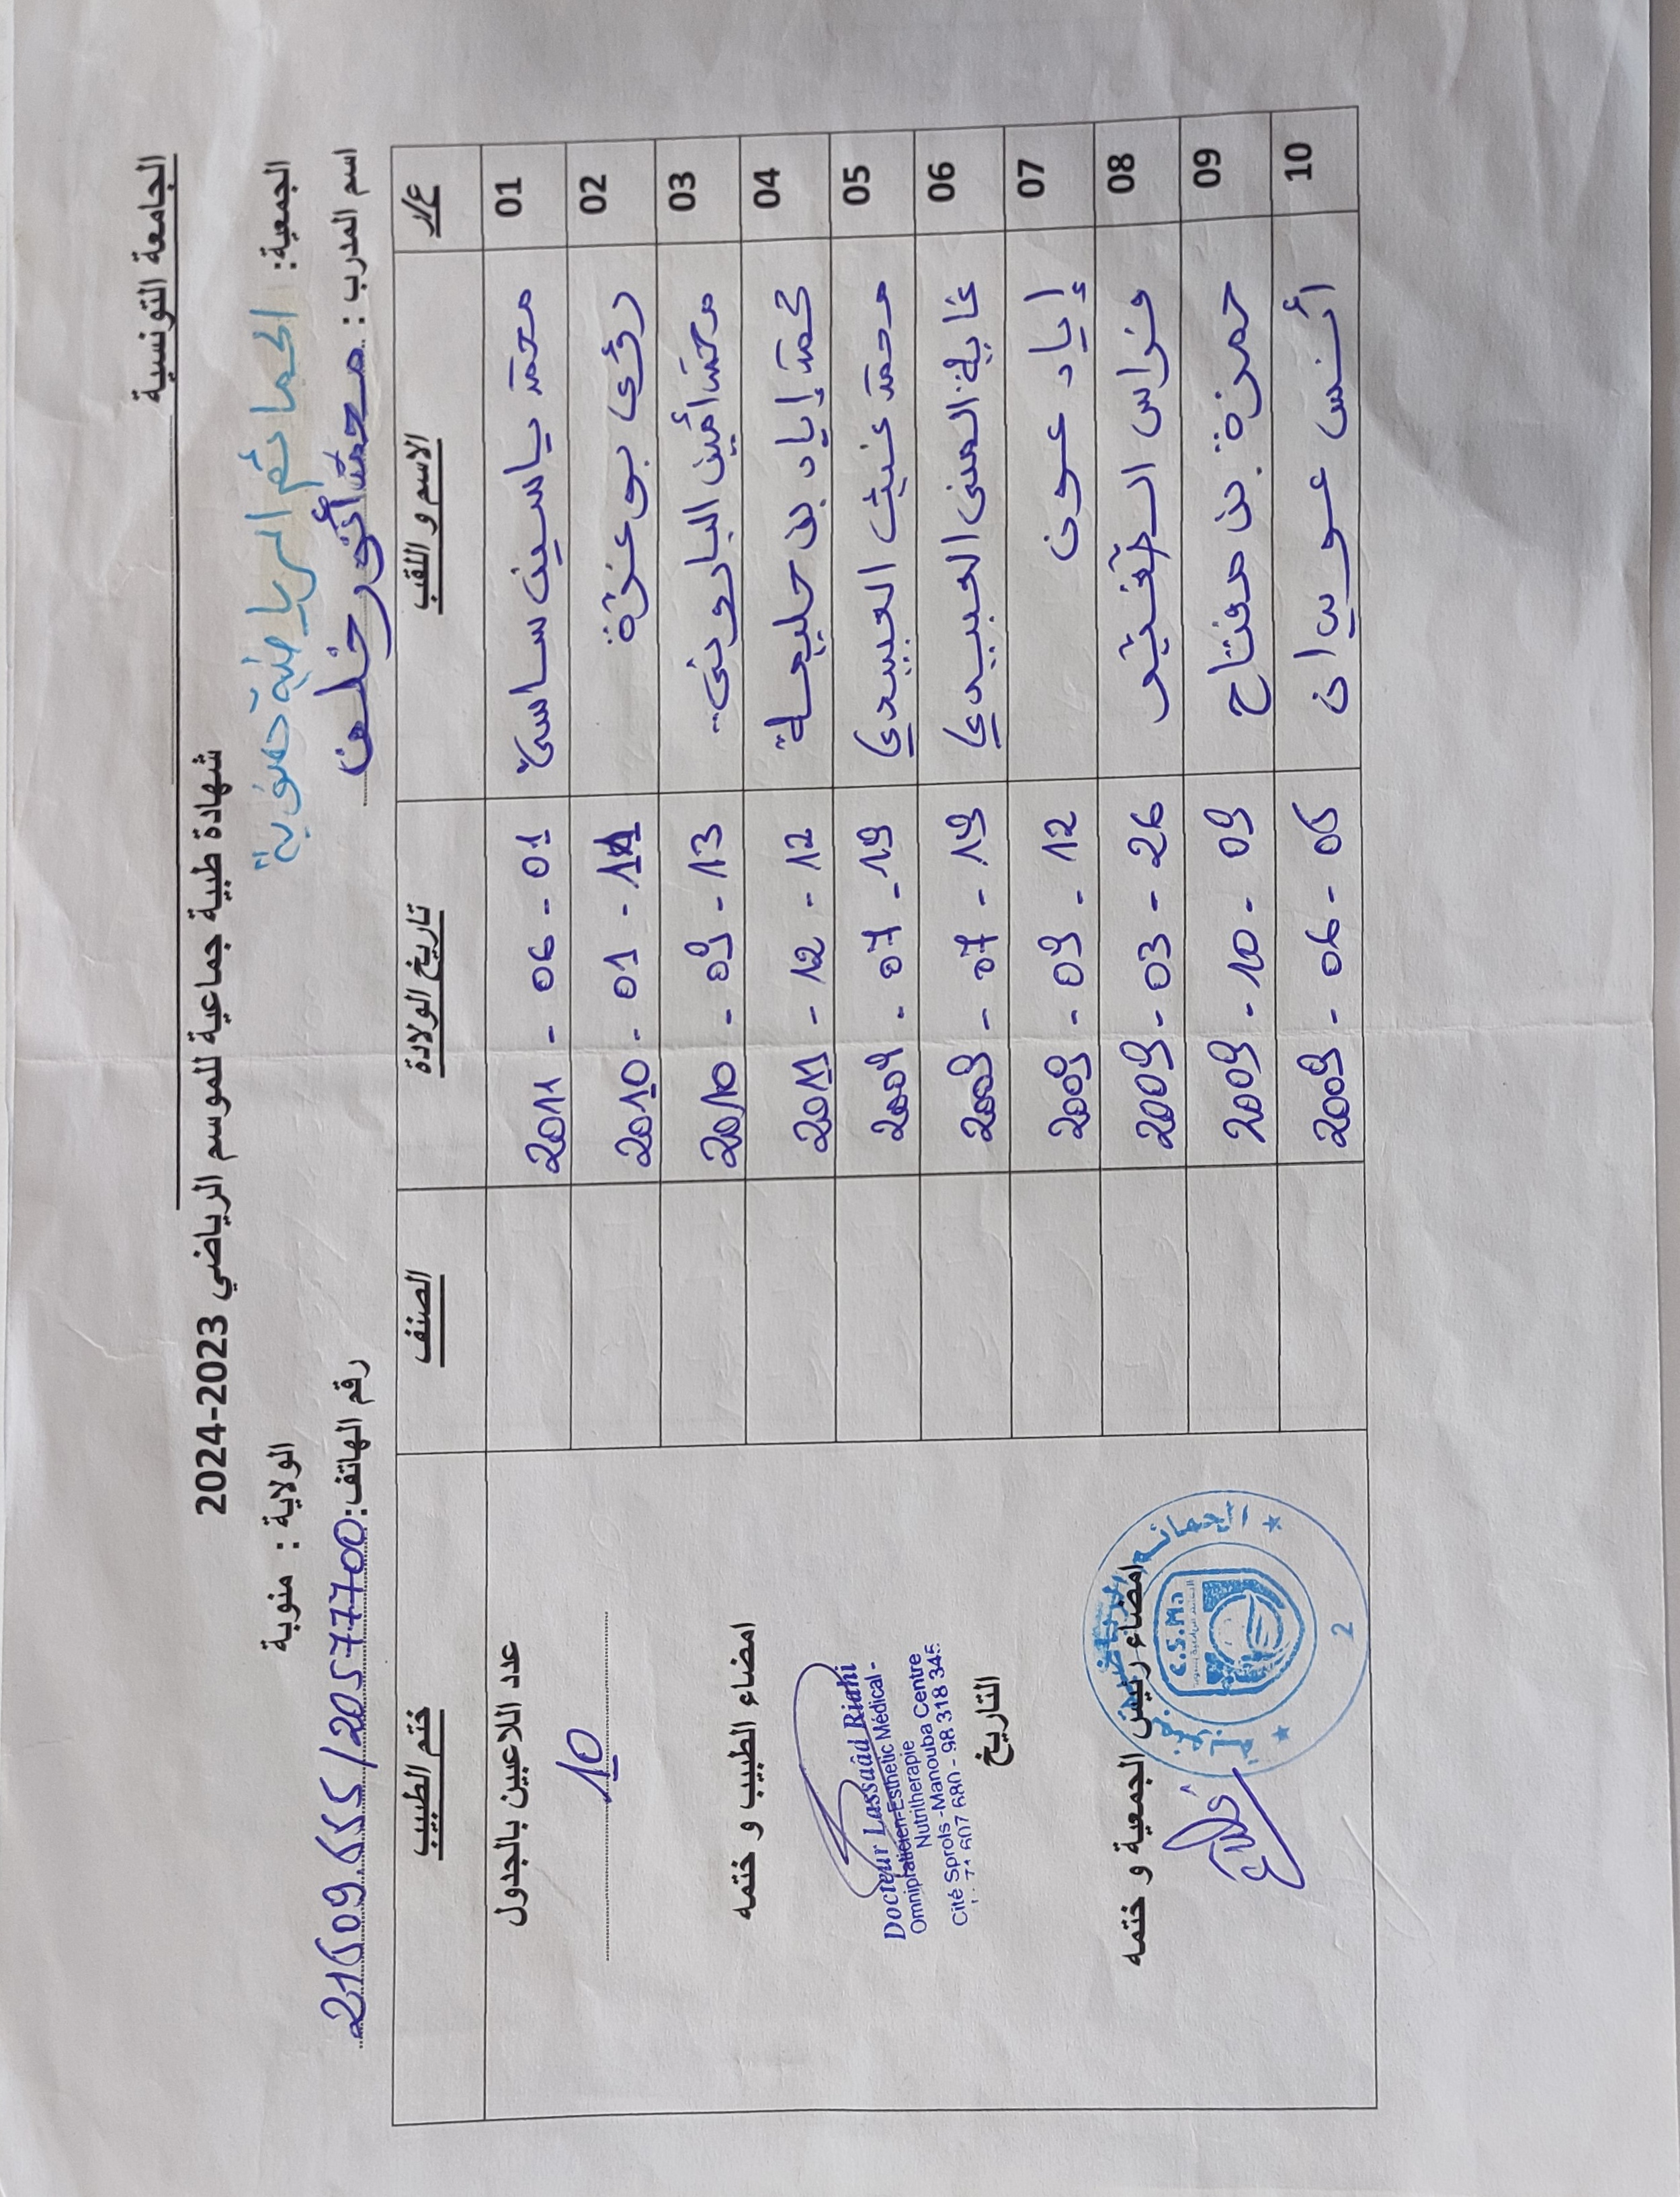 الجامعة التونسية
شهادة طبية جماعية للموسم الرياضي 2023-2024
الجمعية: الحمائم الرياضية بمنوبة الولاية : منوبة
اسم المدرب : محمد أنور خلف رقم الهاتف: 21509555/20577700
ع/ر الاسم و اللقب تاريخ الولادة الصنف ختم الطبيب
01 محمد ياسين ساسي 2011 - 06 - 01
02 رؤى بوعزة 2010 - 01 -
03 محمد أمين الباروني 2010 - 09 - 13
04 محمد إياد بن حليمة 2011 - 12 - 12
05 محمد غيث العبيدي 2009 - 07 - 19
06 غاية المنى العبيدي 2009 - 07 - 19
07 إياد عون 2009 - 09 - 12
08 فراس 2009 - 03 - 26
09 حمزة بن مفتاح 2009 - 10 - 09
10 أنس عويدان 2009 - 06 - 05
عدد اللاعبين بالجدول
10
امضاء الطبيب و ختمه
Docteur Lassaâd Riahi
Omnipraticien-Esthetic Médical -
Nutritherapie
Cité Sprols -Manouba Centre
71 607 680 - 98 318 345
التاريخ
امضاء رئيس الجمعية و ختمه
C.S.M.
2